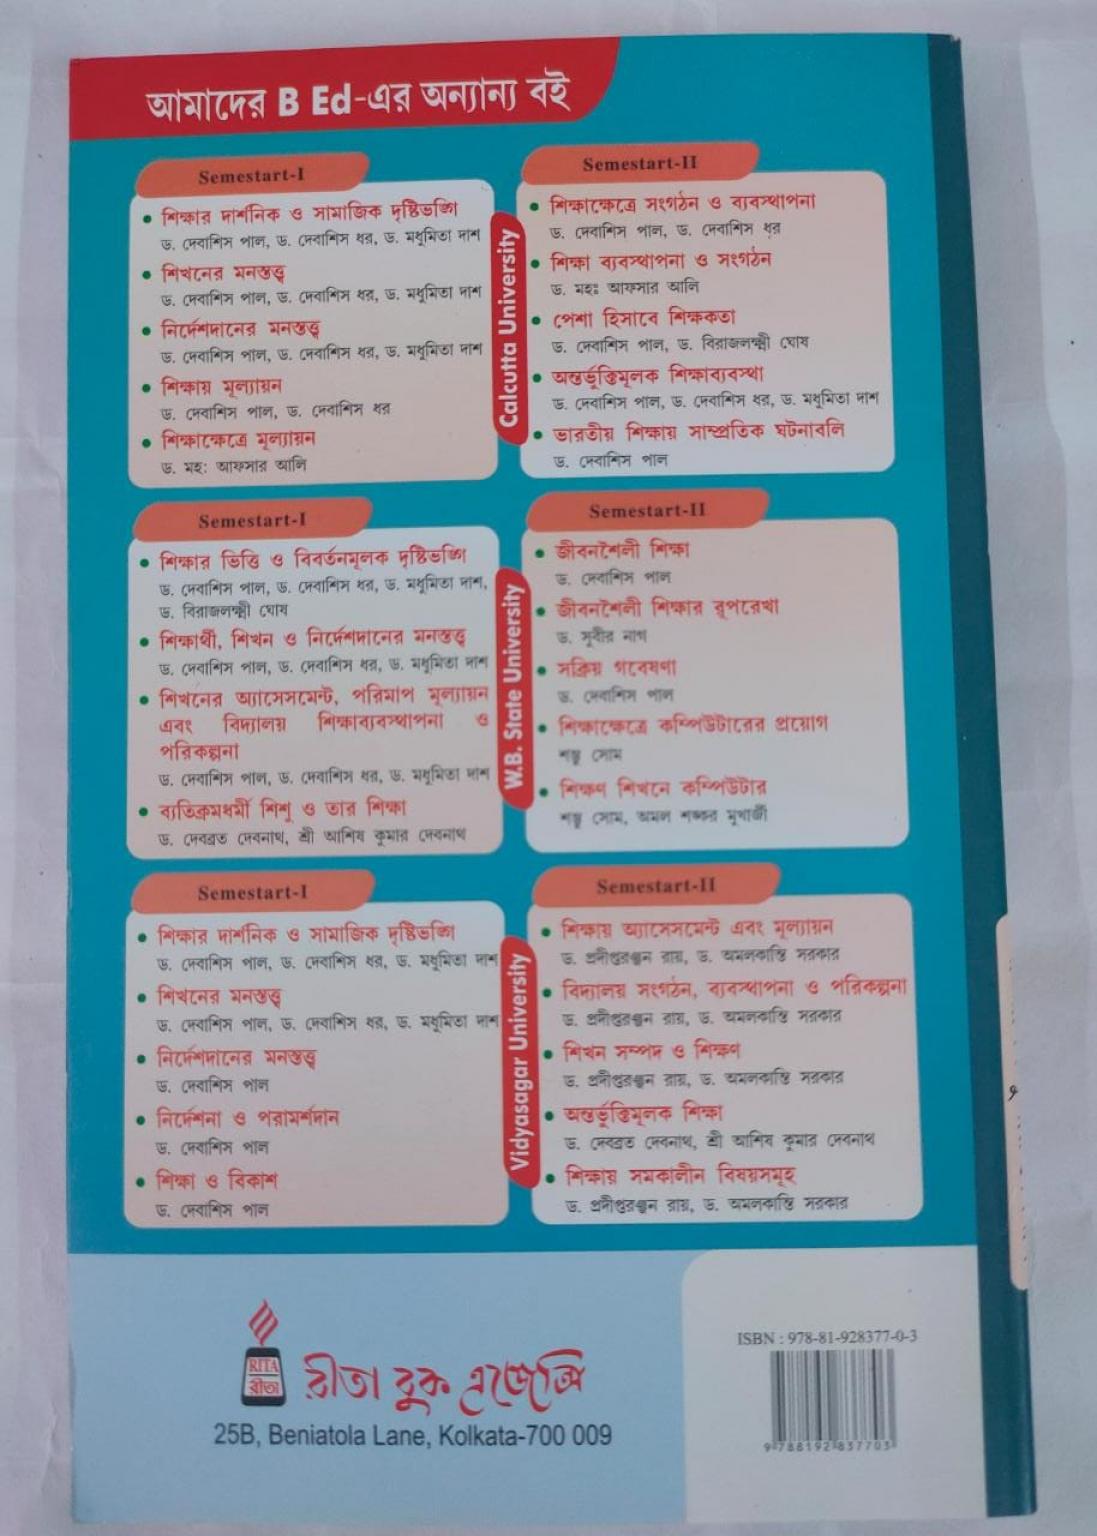 আমাদের B Ed-এর অন্যান্য বই
Semestart-I
• শিক্ষার দার্শনিক ও সামাজিক দৃষ্টিভঙ্গি
ড. দেবাশিস পাল, ড. দেবাশিস ধর, ড. মধুমিতা দাশ
• শিখনের মনস্তত্ত্ব
ড. দেবাশিস পাল, ড. দেবাশিস ধর, ড. মধুমিতা দাশ
• নির্দেশদানের মনস্তত্ত্ব
ড. দেবাশিস পাল, ড. দেবাশিস ধর, ড. মধুমিতা দাশ
• শিক্ষায় মূল্যায়ন
ড. দেবাশিস পাল, ড. দেবাশিস ধর
• শিক্ষাক্ষেত্রে মূল্যায়ন
ড. মহ: আফসার আলি
Calcutta University
Semestart-II
• শিক্ষাক্ষেত্রে সংগঠন ও ব্যবস্থাপনা
ড. দেবাশিস পাল, ড. দেবাশিস ধর
• শিক্ষা ব্যবস্থাপনা ও সংগঠন
ড. মহঃ আফসার আলি
• পেশা হিসাবে শিক্ষকতা
ড. দেবাশিস পাল, ড. বিরাজলক্ষ্মী ঘোষ
• অন্তর্ভুক্তিমূলক শিক্ষাব্যবস্থা
ড. দেবাশিস পাল, ড. দেবাশিস ধর, ড. মধুমিতা দাশ
• ভারতীয় শিক্ষায় সাম্প্রতিক ঘটনাবলি
ড. দেবাশিস পাল
Semestart-I
• শিক্ষার ভিত্তি ও বিবর্তনমূলক দৃষ্টিভঙ্গি
ড. দেবাশিস পাল, ড. দেবাশিস ধর, ড. মধুমিতা দাশ,
ড. বিরাজলক্ষ্মী ঘোষ
• শিক্ষার্থী, শিখন ও নির্দেশদানের মনস্তত্ত্ব
ড. দেবাশিস পাল, ড. দেবাশিস ধর, ড. মধুমিতা দাশ
• শিখনের অ্যাসেসমেন্ট, পরিমাপ মূল্যায়ন
এবং বিদ্যালয় শিক্ষাব্যবস্থাপনা ও
পরিকল্পনা
ড. দেবাশিস পাল, ড. দেবাশিস ধর, ড. মধুমিতা দাশ
• ব্যতিক্রমধর্মী শিশু ও তার শিক্ষা
ড. দেবব্রত দেবনাথ, শ্রী আশিষ কুমার দেবনাথ
W.B. State University
Semestart-II
• জীবনশৈলী শিক্ষা
ড. দেবাশিস পাল
• জীবনশৈলী শিক্ষার রূপরেখা
ড. সুবীর নাগ
• সক্রিয় গবেষণা
ড. দেবাশিস পাল
• শিক্ষাক্ষেত্রে কম্পিউটারের প্রয়োগ
শম্ভু সোম
• শিক্ষণ শিখনে কম্পিউটার
শম্ভু সোম, অমল শঙ্কর মুখার্জী
Semestart-I
• শিক্ষার দার্শনিক ও সামাজিক দৃষ্টিভঙ্গি
ড. দেবাশিস পাল, ড. দেবাশিস ধর, ড. মধুমিতা দাশ
• শিখনের মনস্তত্ত্ব
ড. দেবাশিস পাল, ড. দেবাশিস ধর, ড. মধুমিতা দাশ
• নির্দেশদানের মনস্তত্ত্ব
ড. দেবাশিস পাল
• নির্দেশনা ও পরামর্শদান
ড. দেবাশিস পাল
• শিক্ষা ও বিকাশ
ড. দেবাশিস পাল
Vidyasagar University
Semestart-II
• শিক্ষায় অ্যাসেসমেন্ট এবং মূল্যায়ন
ড. প্রদীপ্তরঞ্জন রায়, ড. অমলকান্তি সরকার
• বিদ্যালয় সংগঠন, ব্যবস্থাপনা ও পরিকল্পনা
ড. প্রদীপ্তরঞ্জন রায়, ড. অমলকান্তি সরকার
• শিখন সম্পদ ও শিক্ষণ
ড. প্রদীপ্তরঞ্জন রায়, ড. অমলকান্তি সরকার
• অন্তর্ভুক্তিমূলক শিক্ষা
ড. দেবব্রত দেবনাথ, শ্রী আশিষ কুমার দেবনাথ
• শিক্ষায় সমকালীন বিষয়সমূহ
ড. প্রদীপ্তরঞ্জন রায়, ড. অমলকান্তি সরকার
RITA
রীতা
রীতা বুক এজেন্সি
25B, Beniatola Lane, Kolkata-700 009
ISBN : 978-81-928377-0-3
9 788192 837703